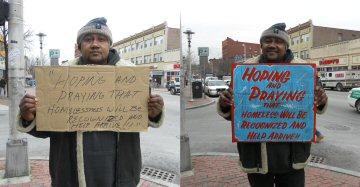 "HOPING AND
PRAYING THAT
HOMELESSNESS WILL BE
RECOGNIZED AND
HELP ARRIVE!!!"
HOPING AND
PRAYING
THAT
HOMELESS WILL BE
RECOGNIZED AND
HELP ARRIVE!!